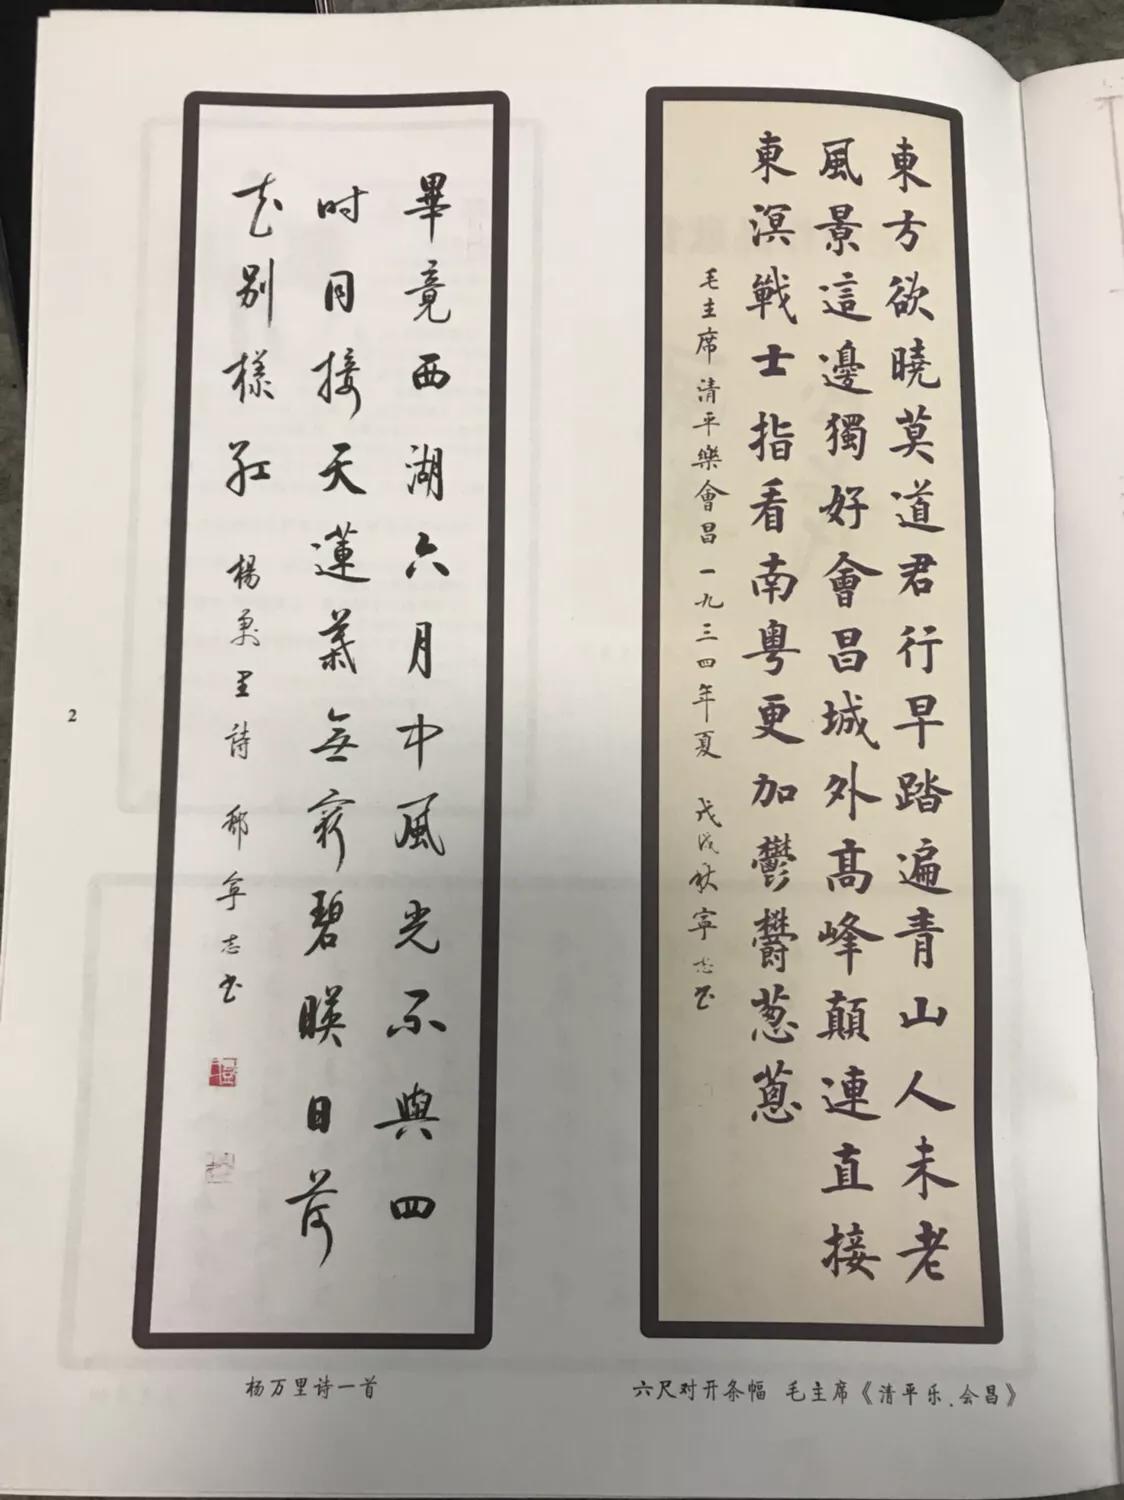 東方欲曉莫道君行早踏遍青山人未老
風景這邊獨好會昌城外髙峰顛連直接
東溟戰士指看南粵更加鬱欝葱蔥
毛主席清平樂會昌一九三四年夏 戊戌秋寧志书
六尺对开条幅 毛主席《清平乐.会昌》
畢竟西湖六月中風光不與四
时同接天蓮葉無窮碧暎日荷
花别樣红 楊萬里詩 邢寧志书
杨万里诗一首
2